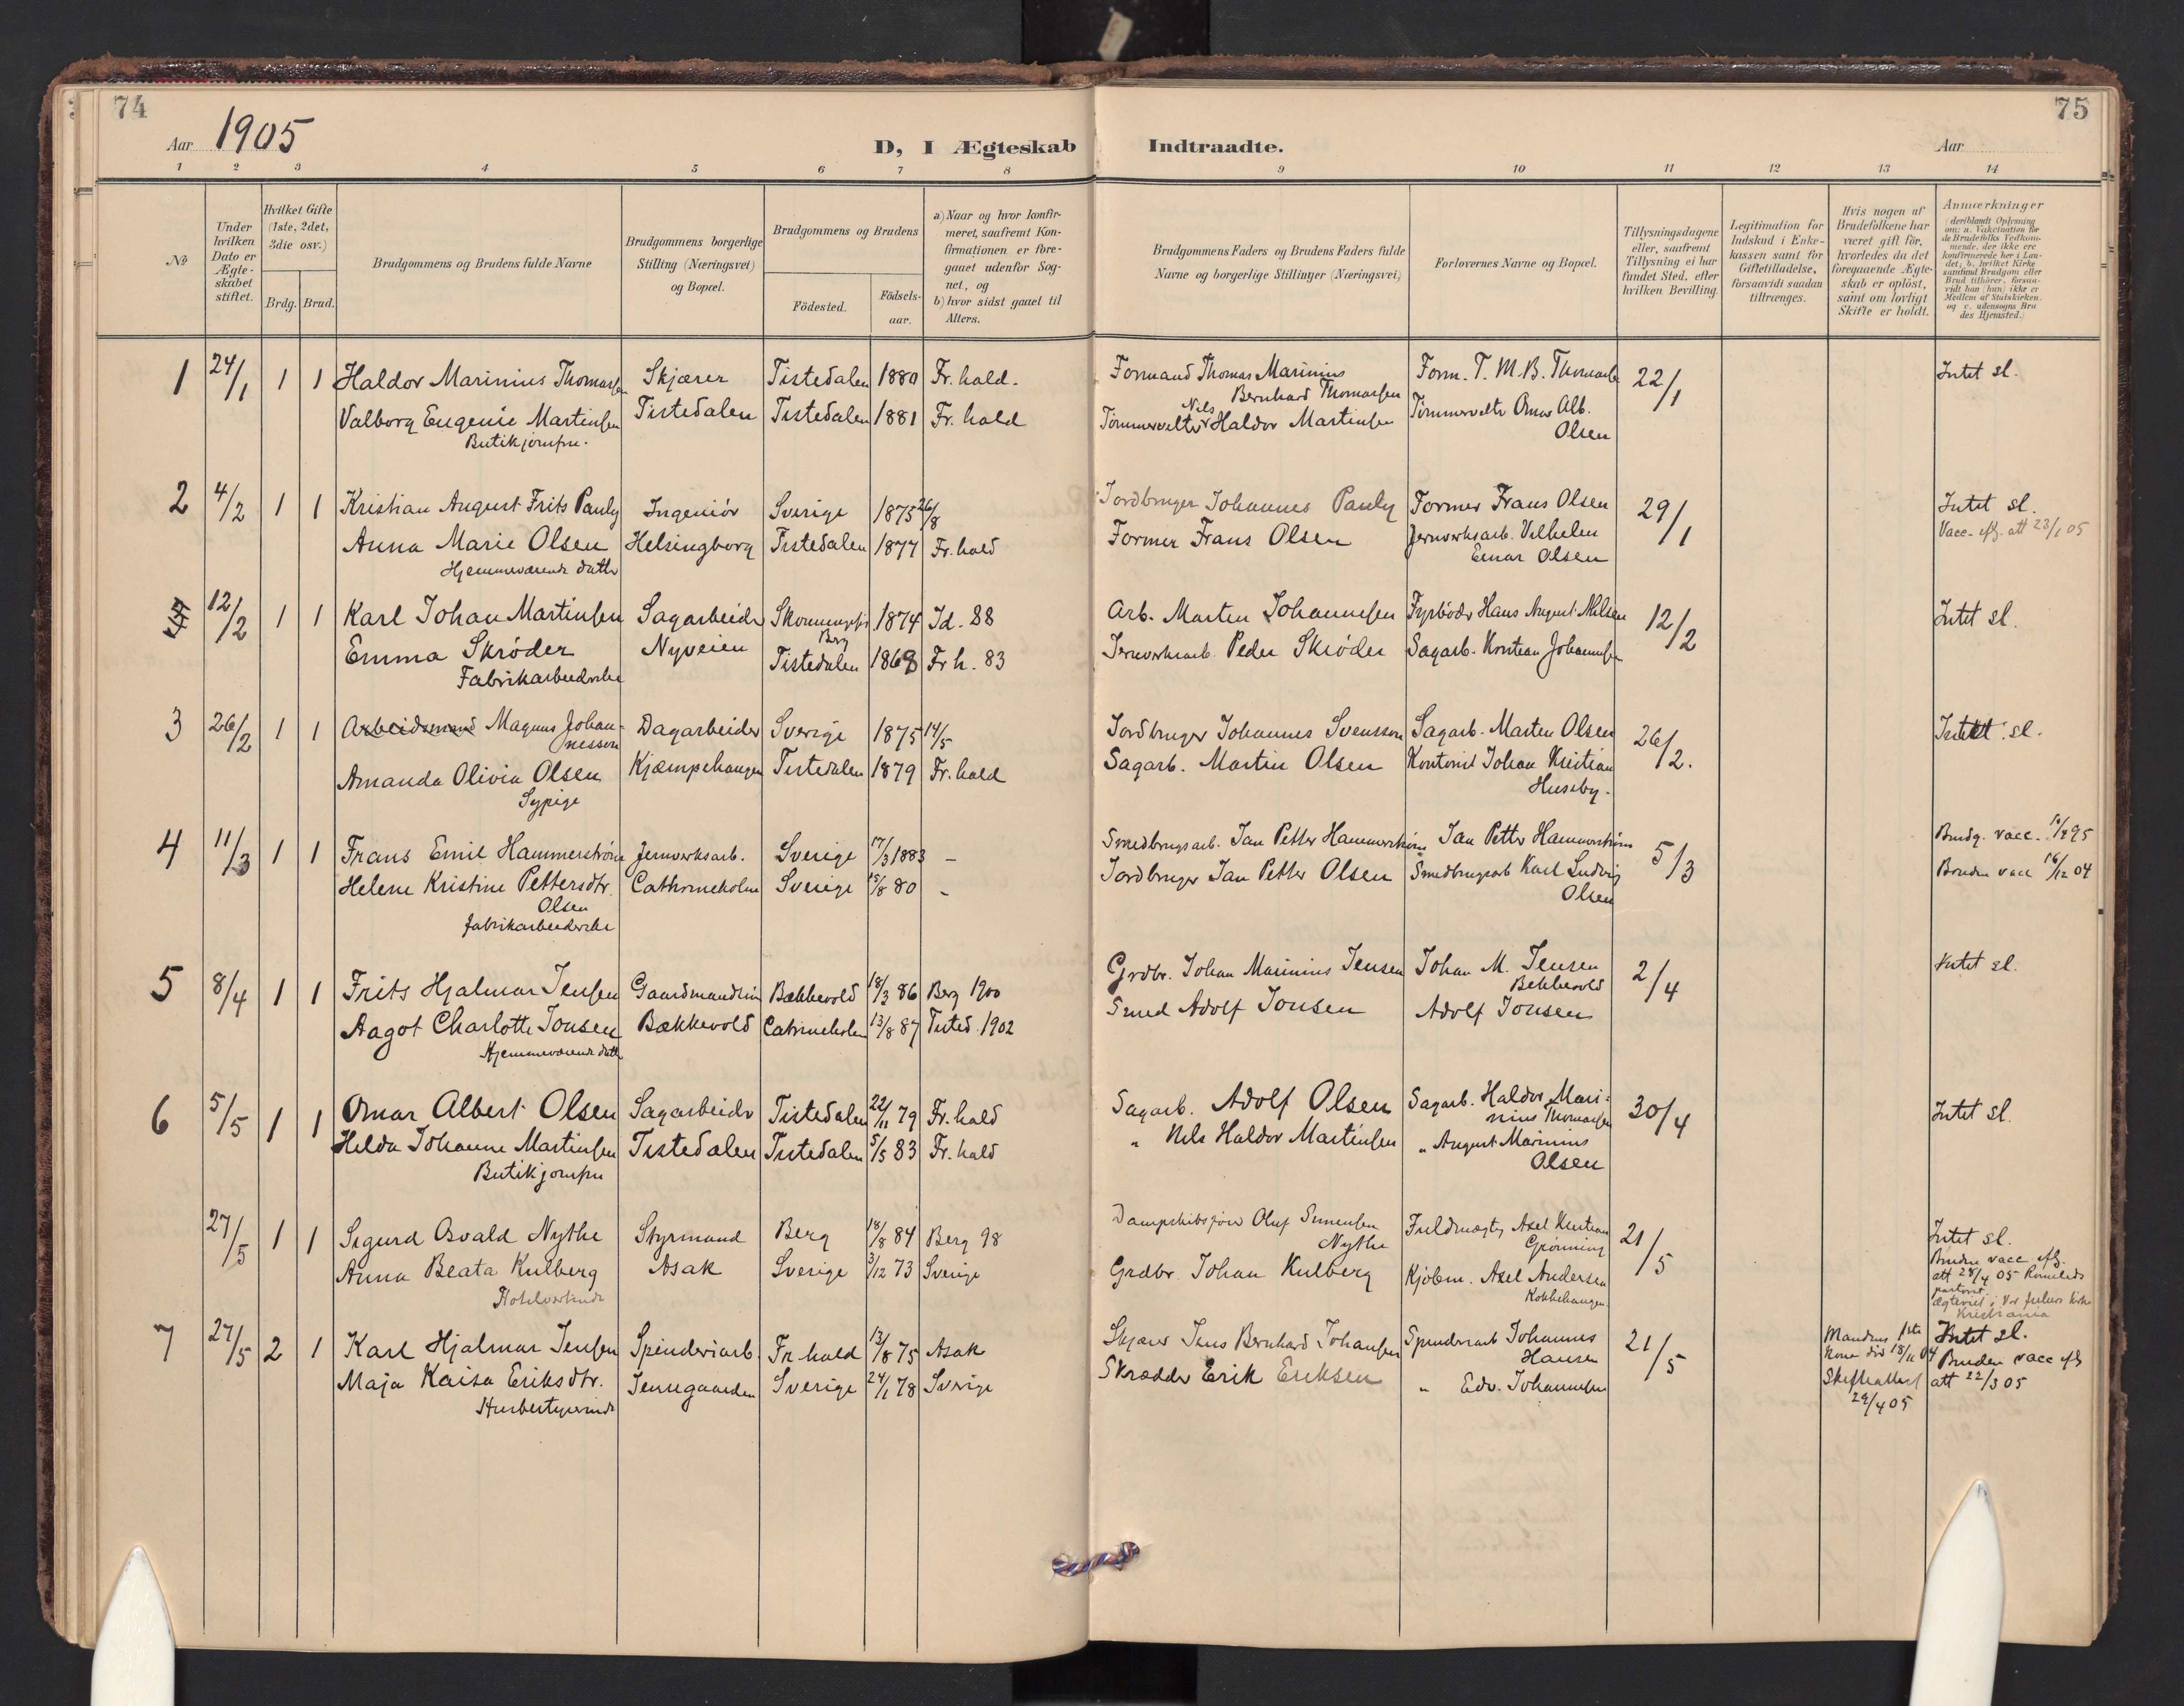 74
75
Aar 1905
D, I Ægteskab Indtraadte.
Aar
1 2 3 4 5 6 7 8 9 10 11 12 13 14
№
Under
hvilken
Dato er
Ægte-
skabet
stiftet.
Hvilket Gifte
(1ste, 2det,
3die osv.)
Brdg. Brud.
Brudgommens og Brudens fulde Navne
Brudgommens borgerlige
Stilling (Næringsvei)
og Bopæl.
Brudgommens og Brudens
Födested.
Födsels-
aar.
a) Naar og hvor konfir-
meret, saafremt Kon-
firmationen er fore-
gaaet udenfor Sog-
net, og
b) hvor sidst gaaet til
Alters.
Brudgommens Faders og Brudens Faders fulde
Navne og borgerlige Stillinger (Næringsvei)
Forlovernes Navne og Bopæl.
Tillysningsdagene
eller, saafremt
Tillysning ei har
fundet Sted, efter
hvilken Bevilling.
Legitimation for
Indskud i Enke-
kassen samt for
Giftetilladelse,
forsaavidt saadan
tiltrænges.
Hvis nogen af
Brudefolkene har
været gift för,
hvorledes da det
foregaaende Ægte-
skab er oplöst,
samt om lovligt
Skifte er holdt.
Anmærkninger
(deriblandt Oplysning
om: a. Vakcination for
de Brudefolks Vedkom-
mende, der ikke ere
konfirmerede her i Lan-
det; b. hvilket Kirke
samfund Brudgom eller
Brud tilhörer, forsaa-
vidt han (hun) ikke er
Medlem af Statskirken,
og c. udensogns Bru
des Hjemsted.)
1 24/1 1 1 Haldor Marinius Thomassen Skjærer Tistedalen 1880 Fr. hald. Formand Thomas Marinius Form. T. M. B. Thomassen 22/1 Intet sl.
Bernhard Thomassen
Valborg Eugenie Martinsen Tistedalen Tistedalen 1881 Fr. hald Tømmervelter Nils Haldor Martinsen Tømmervelter Omar Alb.
Butikjomfru. Olsen
2 4/2 1 1 Kristian August Frits Pauly Ingeniör Sverige 1875 26/8 Jordbruger Johannes Pauly Former Frans Olsen 29/1 Intet sl.
Anna Marie Olsen Helsingborg Tistedalen 1877 Fr. hald Former Frans Olsen Jernverksarb. Vilhelm Vacc. efg. att 23/1 05
Hjemmeværende datter Einar Olsen
12/2 1 1 Karl Johan Martinsen Sagarbeider 1874 Id. 88 Arb. Marten Johannesen Fyrböder Hans August Nilsen 12/2 Intet sl.
Berg
Emma Skröder Nyveien Tistedalen 1868 Fr h. 83 Jernverksarb. Peder Skröder Sagarb. Johannesen
Fabrikarbeiderske
3 26/2 1 1 Arbeidsmand Magnus Johan- Dagarbeider Sverige 1875 14/5 Jordbruger Johannes Svensson Sagarb. Marten Olsen 26/2. Intet sl.
nesson
Amanda Olivia Olsen Kjæmpehaugen Tistedalen 1879 Fr. hald Sagarb. Martin Olsen Kontorist Johan Kristian
Sypige Huseby.
4 11/3 1 1 Frans Emil Hammerström Jernverksarb. Sverige 17/3 1883 – Smedbrugsarb. Jan Petter Hammerström Jan Petter Hammerström 5/3 Brudg. vacc.
Helene Kristine Pettersdtr. Cathrineholm Sverige 15/8 80 – Jordbruger Jan Petter Olsen Smedbrugsarb Karl Ludvig Bruden vacc 16/12 04
Olsen Olsen
fabrikarbeiderske
5 8/4 1 1 Frits Hjalmar Jensen Gaardmandssön Bækkevold 18/3 86 Berg 1900 Grdbr. Johan Marinius Jensen Johan M. Jensen 2/4 Intet sl.
Bekkevold
Aagot Charlotte Jonsen Bækkevold Catrineholm 13/8 87 Tisted. 1902 Smed Adolf Jonsen Adolf Jonsen
Hjemmeværende datter
6 5/5 1 1 Omar Albert Olsen Sagarbeider Tistedalen 22/11 79 Fr. hald Sagarb. Adolf Olsen Sagarb. Haldor Mari- 30/4 Intet sl.
nius Thomassen
Helda Johanne Martinsen Tistedalen Tistedalen 5/5 83 Fr. hald " Nils Haldor Martinsen " August Marinius
Butikjomfru Olsen
27/5 1 1 Sigurd Osvald Nythe Styrmand Berg 18/8 84 Berg 98 Oluf Simensen Fuldmægtg Axel Kristian 21/5 Intet sl.
Nythe Grönning
Anna Beata Kulberg Asak Sverige 3/12 73 Sverige Grdbr. Johan Kulberg Kjöbm. Axel Andersen Bruden vacc efg.
Hotelværtinde Kokkehaugen att 28/4 05
ægteviet i Vor frelsers kirke
Kristiania
7 27/5 2 1 Karl Hjalmar Jensen Spinderiarb. Fr. hald 13/8 75 Asak Skjærer Jens Bernhard Johansen Spinderiarb Johannes 21/5 Mandens 1ste Intet sl.
Hansen kone död 18/11 04
Maja Kaisa Eriksdtr. Sverige 24/1 78 Sverige Skrædder Erik Eriksen " Edv. Johannesen Skifteattest Bruden vacc efg
Husbestyrerinde 29/4 05 att 22/3 05